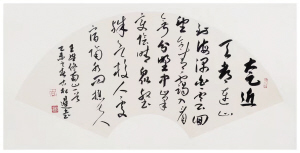 太乙近
天都連山
接海隅白雲回
望合青靄入看
無分野中峯
變陰晴衆壑
殊欲投人處
宿隔水問樵夫
王維終南山詩